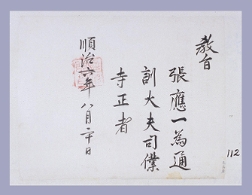 教旨
張應一為通
訓大夫司僕
寺正者
順治六年八月二十日
112